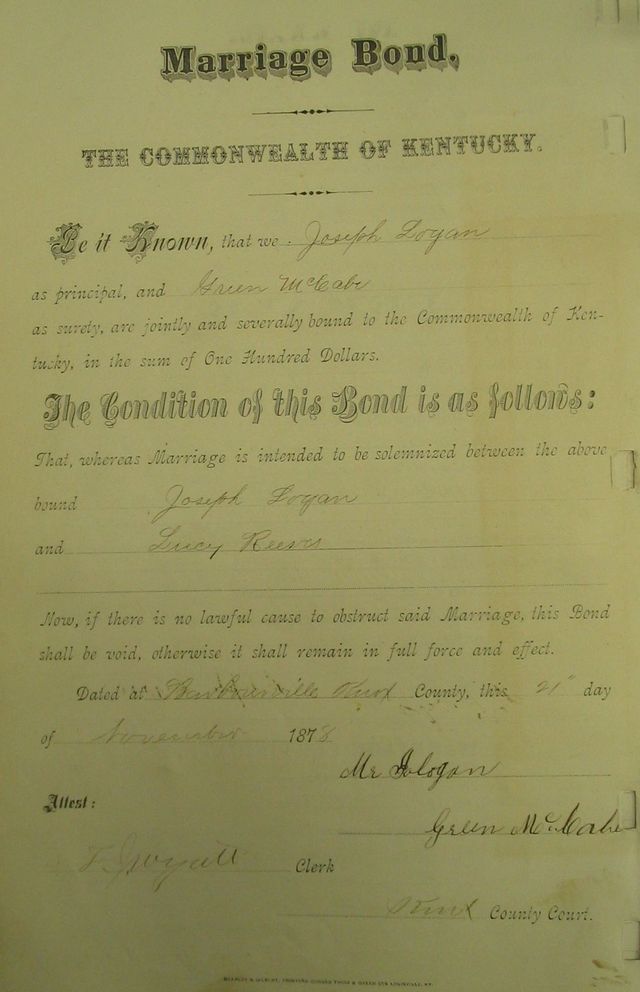 Marriage Bond.
THE COMMONWEALTH OF KENTUCKY.
Be it Known, that we Joseph Logan
as principal, and Green McCabe
as surety, are jointly and severally bound to the Commonwealth of Ken-
tucky, in the sum of One Hundred Dollars.
The Condition of this Bond is as follows:
That, whereas Marriage is intended to be solemnized between the above
bound Joseph Logan
and Lucy Reeves
Now, if there is no lawful cause to obstruct said Marriage, this Bond
shall be void, otherwise it shall remain in full force and effect.
Dated at Barbourville Knox County, this 21" day
of November 1878
Mr Logan
Attest:
Green McCabe
Wyatt Clerk
Knox County Court.